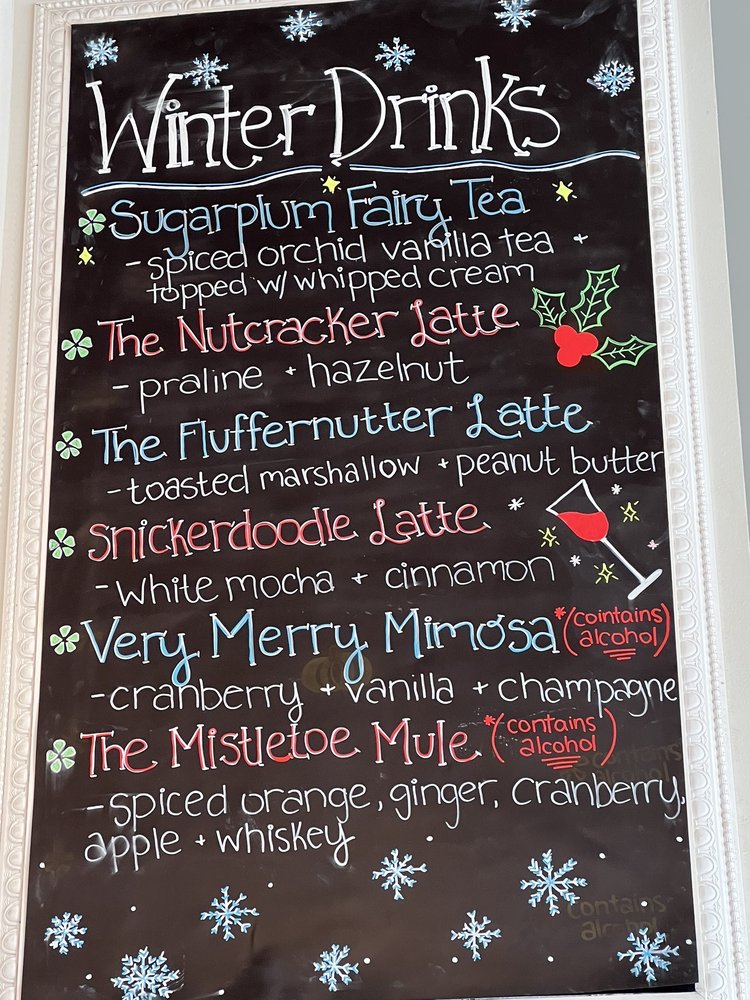 Winter Drinks
Sugarplum Fairy Tea
- spiced orchid vanilla tea +
topped w/ whipped cream
The Nutcracker Latte
- praline + hazelnut
The Fluffernutter Latte
- toasted marshallow + peanut butter
Snickerdoodle Latte
- white mocha + cinnamon
Very Merry Mimosa *(cointains
alcohol)
- cranberry + vanilla + champagne
The Mistletoe Mule *(contains
alcohol)
contains
alcohol
- spiced orange, ginger, cranberry,
apple + whiskey
contains
alcohol